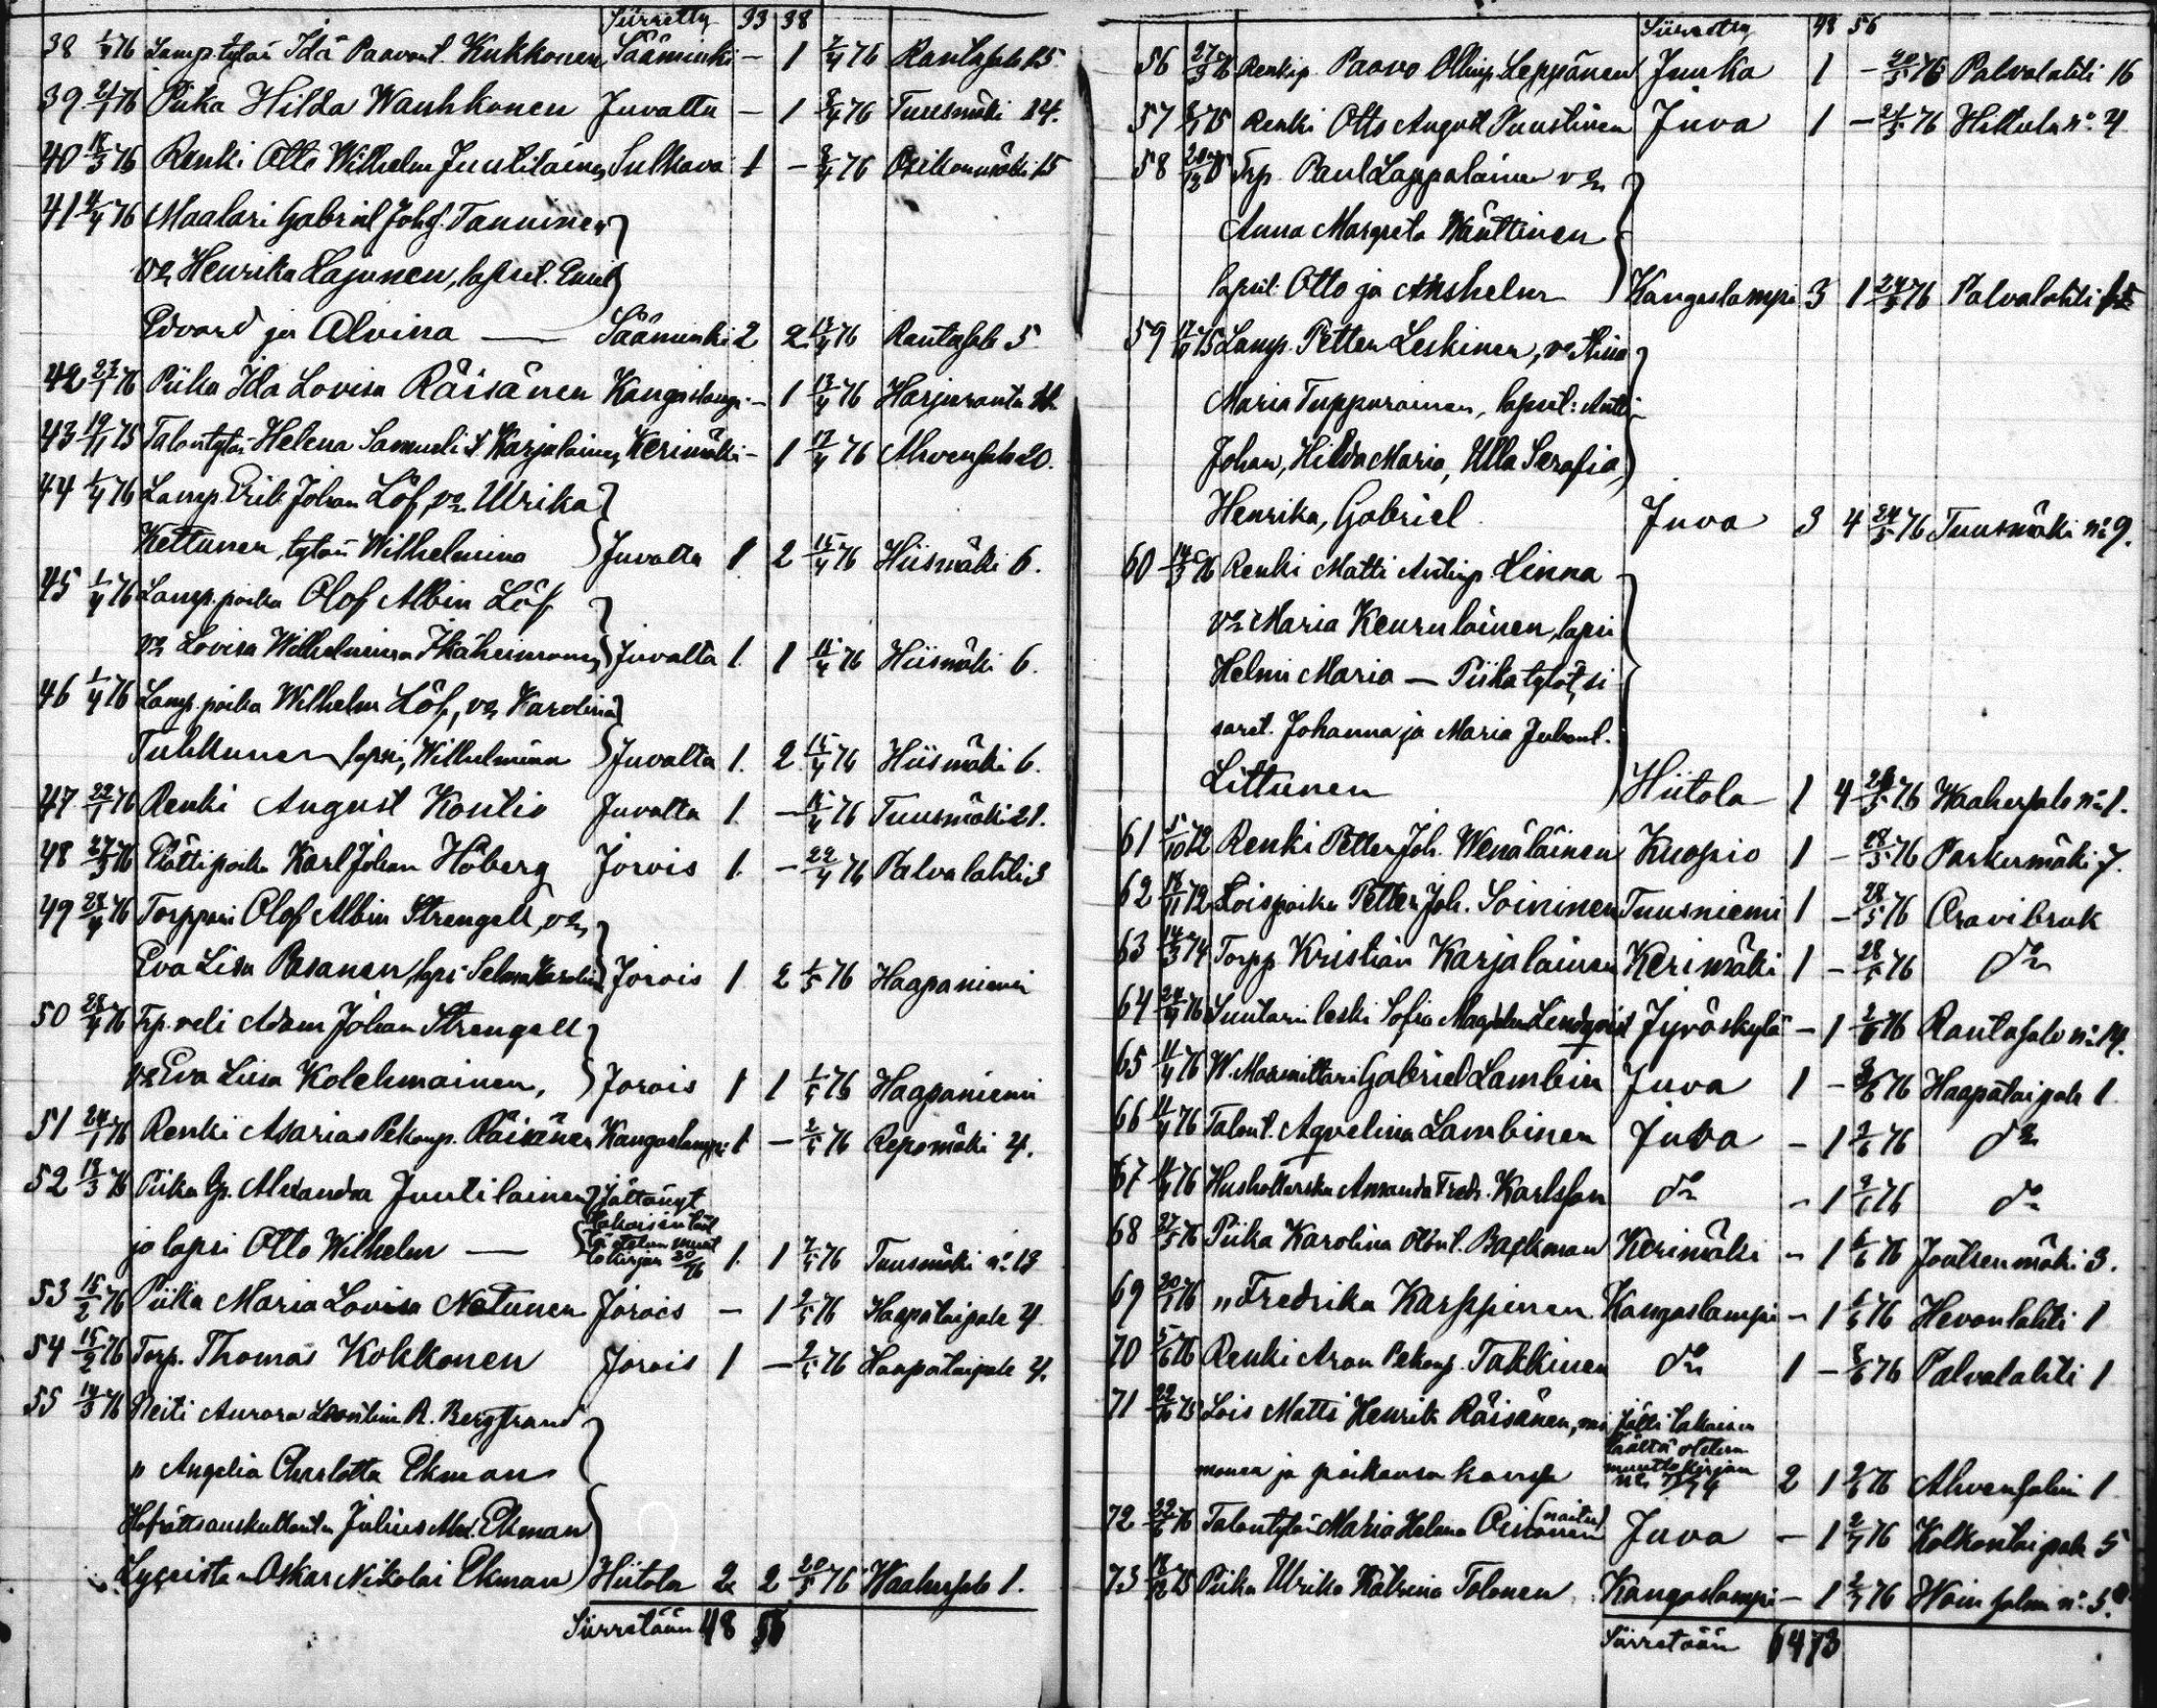 Siirretty 33 38
38 1/4 76 Lamp. tytär Ida Paavont. Kukkonen Sääminki - 1 7/4 76 Rantasalo 15
39 21/1 76 Piika Hilda Wauhkonen Juvalta - 1 8/4 76 Tuusmäki 14.
40 18/3 76 Renki Otto Wilhelm Juutilainen Sulkava 1 - 8/4 76 Osikonmäki 15
41 4/4 76 Maalari Gabriel Johs. Tanninen
va Henrika Lajunen, lapset. Emil
Edvard ja Alvina — Sääminki 2 2 13/4 76 Rantasalo 5
42 27/1 76 Piika Ida Lovisa Räisänen Kangaslampi - 1 13/4 76 Harjuranta
43 19/11 75 Talontytär Helena Samuelis t. Karjalainen Kerimäki - 1 17/4 76 Ahvensalo 20.
44 1/4 76 Lamp. Erik Johan Löf, va Ulrika
Kettunen, tytär Wilhelmina Juvalta 1 2 15/4 76 Hiismäki 6.
45 1/4 76 Lamp. poika Olof Albin Löf
va Lovisa Wilhelmina Ikäheimonen Juvalta 1. 1 15/4 76 Hiismäki 6.
46 1/4 76 Lamp. poika Wilhelm Löf, va Karolina
Tuhkunen lapsi, Wilhelmina Juvalta 1. 2 15/4 76 Hiismäki 6.
47 22/1 76 Renki August Kontio Juvalta 1. - 15/4 76 Tuusmäki 21.
48 27/3 76 Plättipoika Karl Johan Höberg Jorois 1. - 22/4 76 Palvalahti 3
49 28/4 76 Torppari Olof Albin Strengell, va
Eva Lisa Pasanen, lapsi Selma Karolina Jorois 1 2 1/5 76 Haapaniemi
50 28/4 76 Trp. veli Adam Johan Strengell
va Eva Liisa Kolehmainen, Jorois 1 1 1/5 76 Haapaniemi
51 24/1 76 Renki Asarias Pekanp. Räisänen Kangaslampi 1 - 2/5 76 Repomäki 4.
52 18/3 76 Piika Alexandra Juutilainen Jättänyt
ja lapsi Otto Wilhelm — 1. 1 7/5 76 Tuusmäki no 13
53 15/2 76 Piika Maria Lovisa Natunen Jorois - 1 2/5 76 Haapataipale 4
54 15/2 76 Torp. Thomas Kokkonen Jorois 1 - 2/5 76 Haapataipale 4.
55 14/3 76 Neiti Aurora R. Bergstrand
" Angelia Charlotta Ekman
Hofrättsauskultantin Julius Ekman
Lyseista Oskar Nikolai Ekman Hiitola 2 2 20/5 76 Waahersalo 1.
Siirretään 48 56
Siirretty 48 56
56 27/3 76 Renkip. Paavo Ollinp. Leppänen Juuka 1 - 20/5 76 Palvalahti 16
57 8/1 75 Renki Otto August Puustinen Juva 1 - 21/5 76 Hiltula no 4
58 Trp. Paul Lappalainen va
Anna Margreta Wänttinen
lapset: Otto ja Anshelm Kangaslampi 3 1 24/5 76 Palvalahti
59 17/11 75 Lamp. Petter Leskinen, va Stina
Maria Tuppurainen, lapset: Antti
Johan, Hilda Maria, Ulla Serafia,
Henrika, Gabriel Juva 3 4 24/5 76 Tuusmäki no 9.
60 14/3 76 Renki Matti Antinp. Linna
va Maria Keurulainen, lapsi
Helmi Maria — Piikatytöt, si
saret. Johanna ja Maria Juhont.
Littunen Hiitola 1 4 28/5 76 Waahersalo no 1.
61 5/10 72 Renki Petter Joh. Wenäläinen Kuopio 1 - 28/5 76 Parkumäki 7.
62 18/11 72 Loispoika Petter Joh. Soininen Tuusniemi 1 - 28/5 76 Oravi bruk
63 14/3 74 Torpp Kristian Karjalainen Kerimäki 1 - 28/5 76 do
64 24/4 76 Suutarin leski Sofia Magdalena Lindqvist Jyväskylä - 1 2/6 76 Rantasalo no 14.
65 11/4 76 W. Maanmittari Gabriel Lambin Juva 1 - 3/6 76 Haapataipale 1
66 11/4 76 Talont. Aqvelina Lambinen Juva - 1 3/6 76 do
67 11/4 76 Hushollerska Amanda Fredr. Karlsson do - 1 3/6 76 do
68 27/5 76 Piika Karolina Backman Kerimäki - 1 6/6 76 Joutsenmäki 3.
69 20/1 76 " Fredrika Karppinen Kangaslampi - 1 6/6 76 Hevonlahti 1
70 5/6 76 Renki Aron Pekanp. Takkinen do 1 - 8/6 76 Palvalahti 1
71 22/10 75 Lois Matti Henrik Räisänen, vai jätti takaisin
täältä otetun
monsa ja poikansa kanssa muuttokirjan 2 1 2/6 76 Ahvensalmi 1
72 22/6 76 Talontytär Maria Helena (naitu) Juva - 1 2/7 76 Kolkontaipale 5
73 18/12 75 Piika Ulrika Katrina Tolonen Kangaslampi - 1 2/7 76 Woinsalmi no 5.
Siirretään 64 73